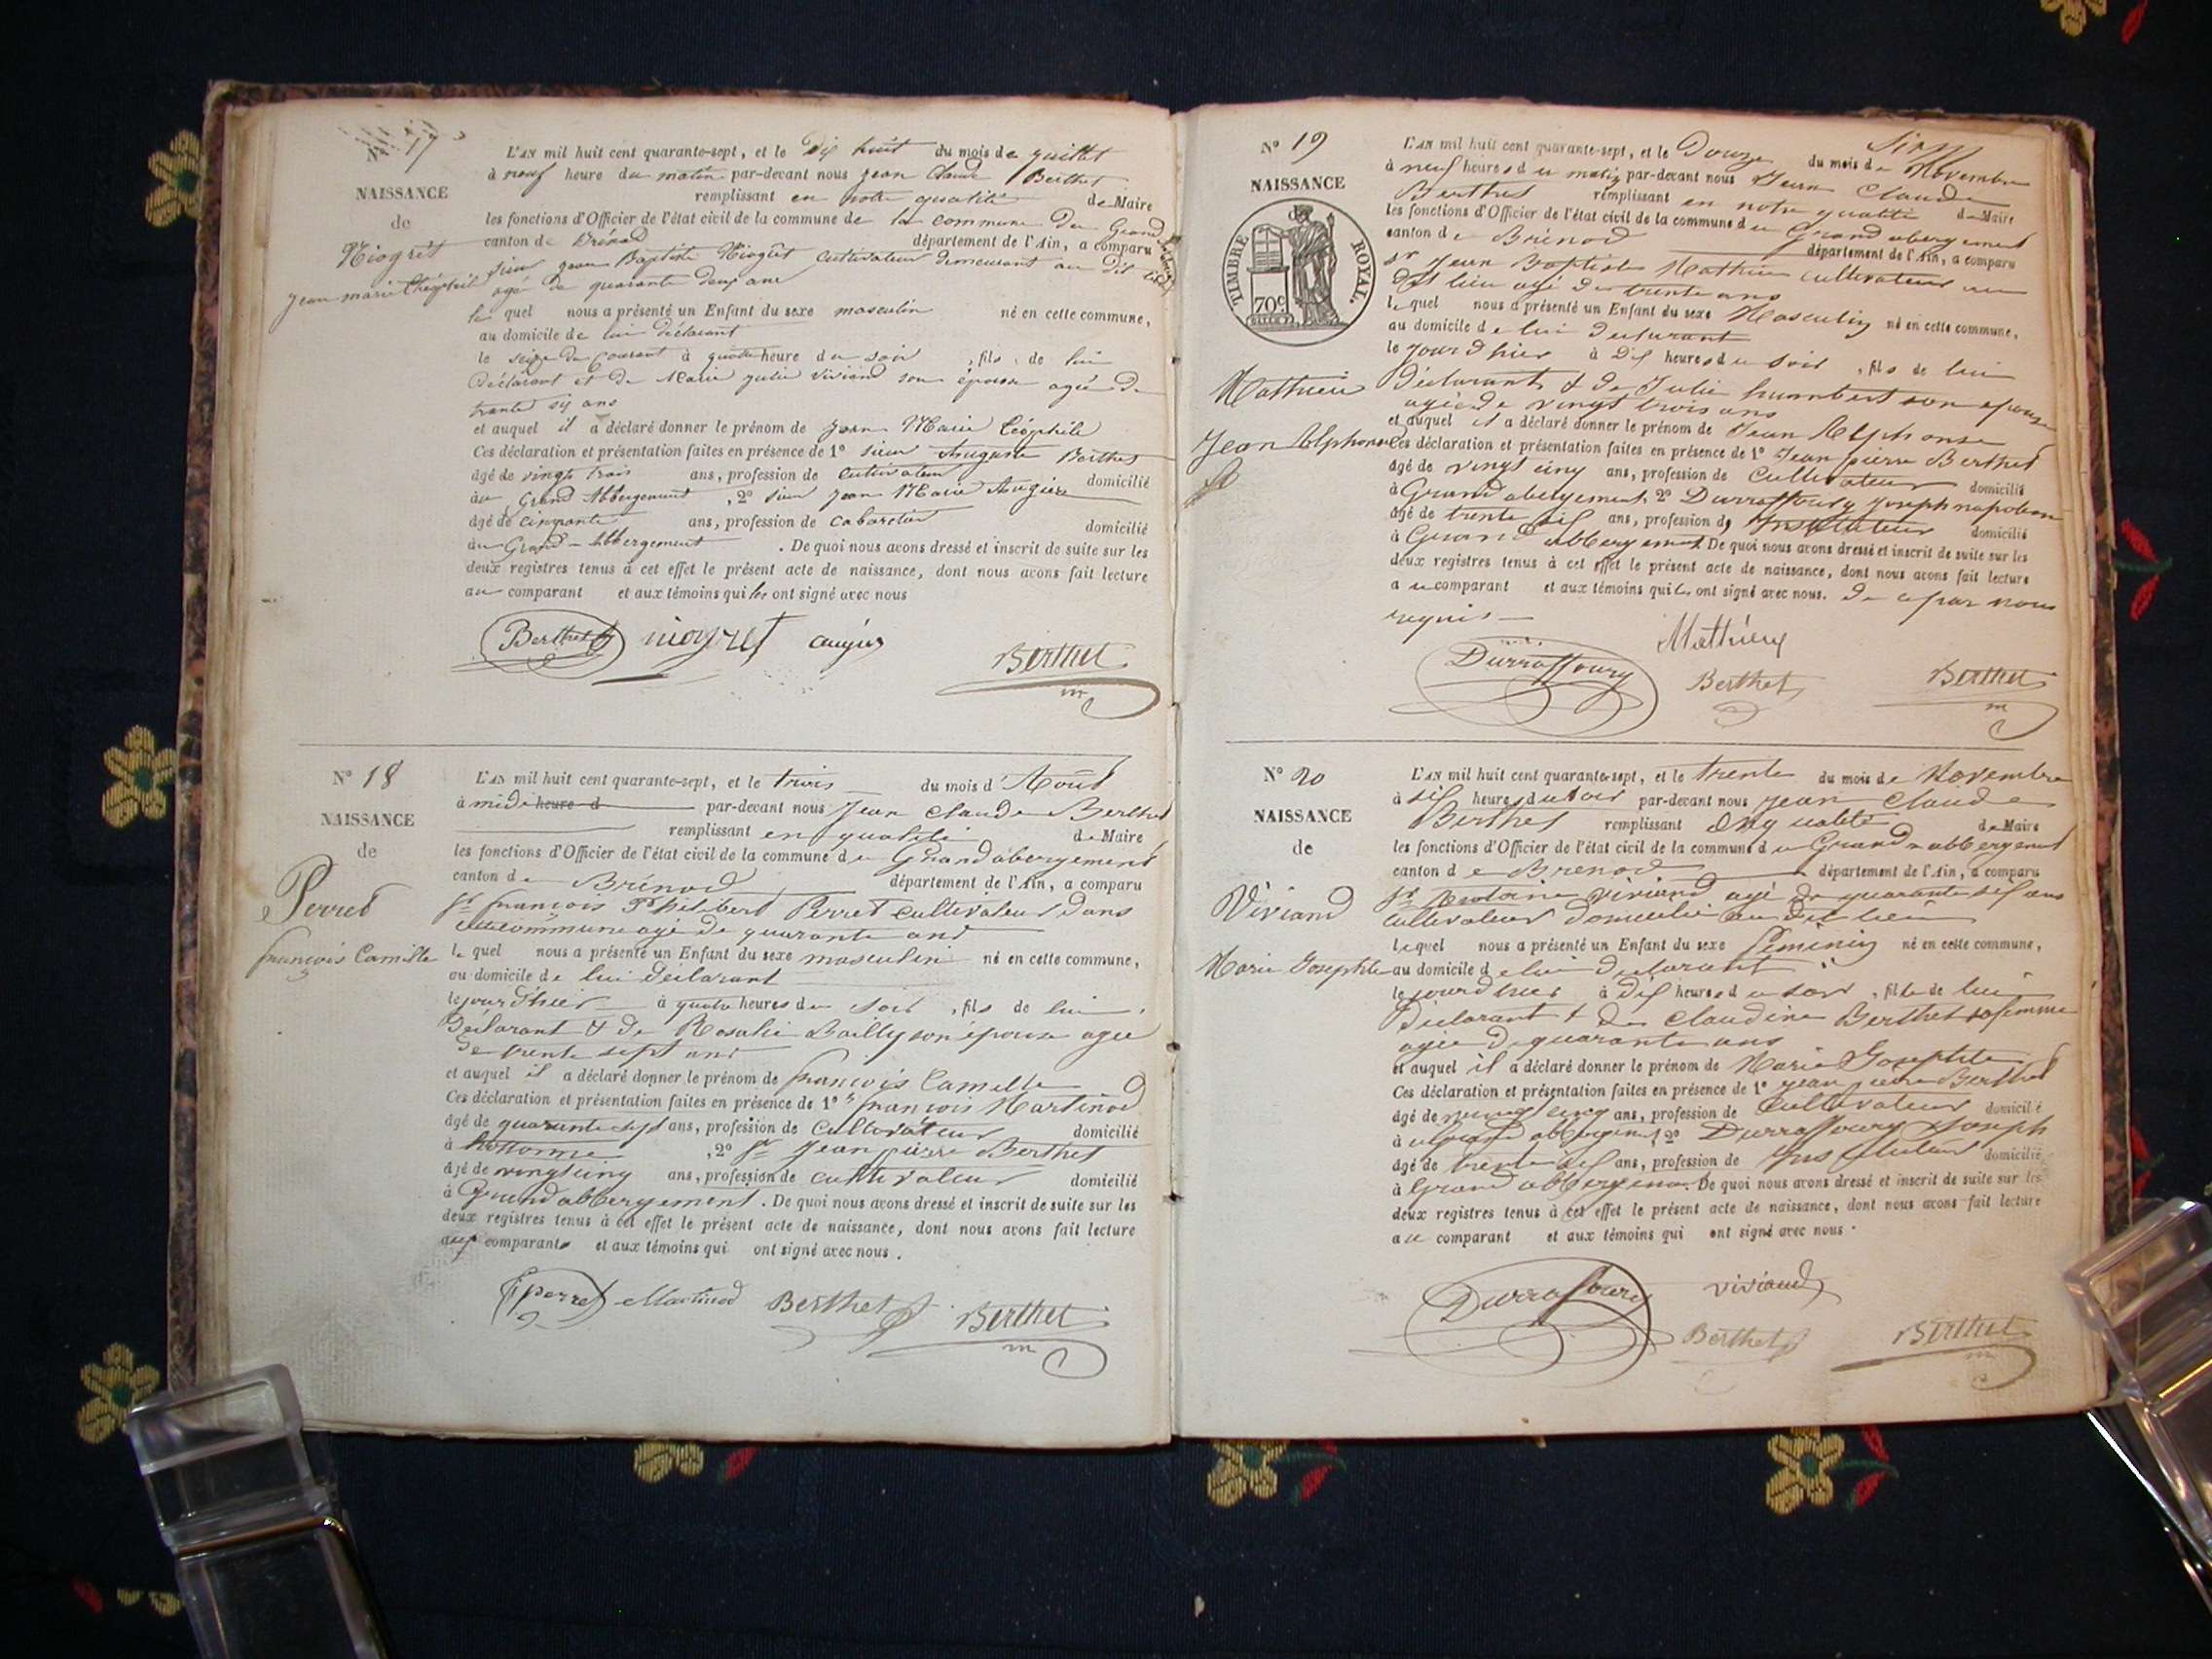 N° 17
NAISSANCE
de
Niogret
Jean marie Théophile
L'AN mil huit cent quarante-sept, et le dix huit du mois de juillet
à neuf heure du matin par-devant nous jean Claude Berthet
remplissant en notre qualité de Maire
les fonctions d'Officier de l'état civil de la commune de la commune du Grand
canton de Brénod département de l'Ain, a comparu
sieur jean Baptiste Niogret cultivateur demeurant au dit lieu
agé de quarante deux ans
le quel nous a présenté un Enfant du sexe masculin né en cette commune,
au domicile de lui déclarant
le seize du courant à quatre heure du soir, fils de lui
déclarant et de Marie julie Viviand son épouse agée de
trente six ans
et auquel il a déclaré donner le prénom de jean Marie Théophile
Ces déclaration et présentation faites en présence de 1° sieur Auguste Berthet
âgé de vingt trois ans, profession de cultivateur domicilié
au Grand Abbergement, 2° sieur jean Marie Augier
âgé de cinquante ans, profession de cabaretier domicilié
au Grand-Abbergement. De quoi nous avons dressé et inscrit de suite sur les
deux registres tenus à cet effet le présent acte de naissance, dont nous avons fait lecture
au comparant et aux témoins qui les ont signé avec nous
Berthet niogret augier
Berthet
N° 18
NAISSANCE
de
Perret
françois Camille
L'AN mil huit cent quarante-sept, et le trois du mois d'Août
à midi heure d par-devant nous Jean Claude Berthet
remplissant en qualité de Maire
les fonctions d'Officier de l'état civil de la commune du Grand abergement
canton de Brénod département de l'Ain, a comparu
Sr françois Philibert Perret cultivateur dans
cette commune agé de quarante ans
le quel nous a présenté un Enfant du sexe masculin né en cette commune,
au domicile de lui déclarant
le jour d'hier à quatre heures du soir, fils de lui
Déclarant & de Rosalie Bailly son épouse agée
de trente sept ans
et auquel il a déclaré donner le prénom de françois Camille
Ces déclaration et présentation faites en présence de 1° Sr françois Martinod
âgé de quarante sept ans, profession de cultivateur domicilié
à hotonne, 2° Sr Jean pierre Berthet
âgé de vingt cinq ans, profession de cultivateur domicilié
à Grand abbergement. De quoi nous avons dressé et inscrit de suite sur les
deux registres tenus à cet effet le présent acte de naissance, dont nous avons fait lecture
aux comparants et aux témoins qui ont signé avec nous.
perret Martinod Berthet Berthet
N° 19
NAISSANCE
TIMBRE ROYAL.
70c
Mathieu
Jean Alphonse
L'AN mil huit cent quarante-sept, et le Douze du mois de Novembre
à neuf heures du matin par-devant nous Jean Claude
Berthet remplissant en notre qualité de Maire
les fonctions d'Officier de l'état civil de la commune du Grand abergement
canton de Brénod département de l'Ain, a comparu
Sr Jean Baptiste Mathieu cultivateur au
dit lieu agé de trente ans
le quel nous a présenté un Enfant du sexe Masculin né en cette commune,
au domicile de lui declarant
le jour d'hier à dix heures du soir, fils de lui
déclarant & de Julie humbert son epouse
agée de vingt trois ans
et auquel il a déclaré donner le prénom de Jean Alphonse
Ces déclaration et présentation faites en présence de 1° Jean pierre Berthet
âgé de vingt cinq ans, profession de cultivateur domicilié
à Grand abergement, 2° Durraffourg Joseph napoleon
âgé de trente six ans, profession d'Instituteur domicilié
à Grand abbergement. De quoi nous avons dressé et inscrit de suite sur les
deux registres tenus à cet effet le présent acte de naissance, dont nous avons fait lecture
au comparant et aux témoins qui les ont signé avec nous. de ce par nous
requis
Mathieu
Durraffourg Berthet Berthet
N° 20
NAISSANCE
de
Viviand
Marie Josephte
L'AN mil huit cent quarante-sept, et le trente du mois de Novembre
à six heures du soir par-devant nous Jean Claude
Berthet remplissant en qualité de Maire
les fonctions d'Officier de l'état civil de la commune du Grand-abbergement
canton de Brenod département de l'Ain, a comparu
Sr Antoine Viviand agé de quarante six ans
cultivateur domicilié au dit lieu
lequel nous a présenté un Enfant du sexe féminin né en cette commune,
au domicile de lui declarant
le jour d'hier à dix heures du soir, fille de lui
déclarant & de Claudine Berthet sa femme
agée de quarante ans
et auquel il a déclaré donner le prénom de Marie Josephte
Ces déclaration et présentation faites en présence de 1° jean pierre Berthet
âgé de vingt cinq ans, profession de cultivateur domicilié
à Grand abbergement, 2° Durraffourg Joseph
âgé de trente six ans, profession de Instituteur domicilié
à Grand abbergement. De quoi nous avons dressé et inscrit de suite sur les
deux registres tenus à cet effet le présent acte de naissance, dont nous avons fait lecture
au comparant et aux témoins qui ont signé avec nous.
Durraffourg viviand
Berthet Berthet